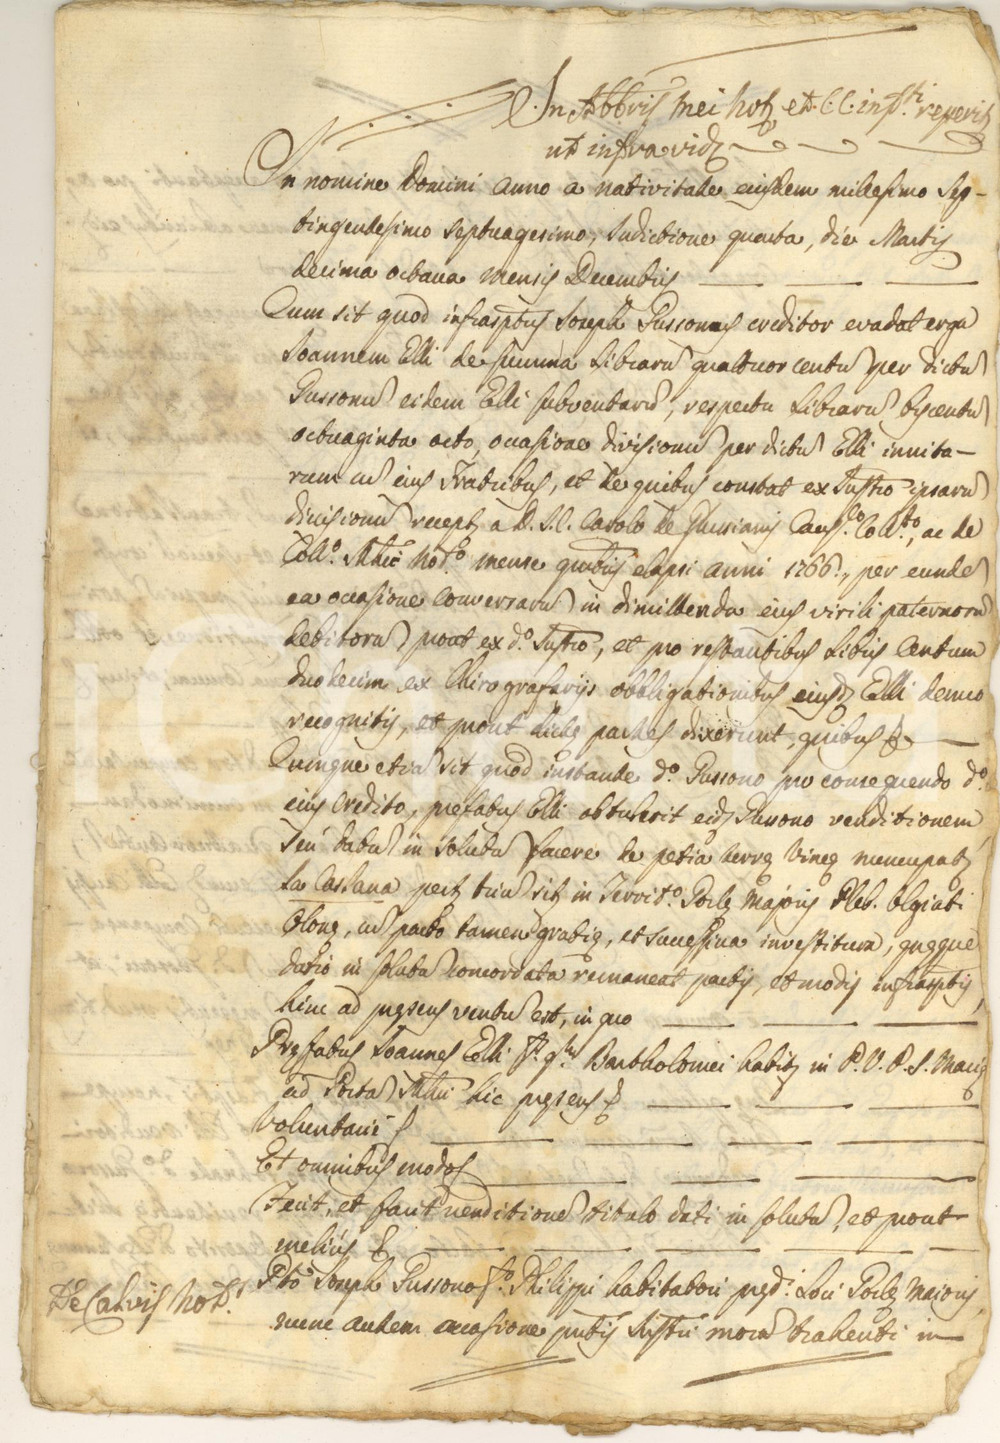 In Abbrijs mei Notȩ et C. C. infrti reperitȩ
ut infra videȩ
In nomine Domini anno a nativitate eiusdem millesimo sep-
tingentesimo septuagesimo, Indictione quarta, die Martis
decima octava mensis Decembris
Cum sit quod infrasptus Joseph Gussonus creditor evadat erga
Joannem Elli de summa librarū quattuor centū per dictū
Gussonū eidem Elli subventarū, respectu librarū bycentū
octuaginta octo, occasione divisionū per dictū Elli innita-
rum cū eius Fratribus, et de quibus constat ex Instro ipsarū
divisionū receptȩ a D. J. C. Carolo de Caus.o Coll.to, ac de
Coll.o Mli Not.o mense elapsi anni 1766., per eundē
ea occasione conversarū in dimittenda eius virili paternorū
debitorū prout ex d.o Instro, et pro restantibus libris Centum
duodecim ex Chirografarijs obbligationibus eiusdȩ Elli
recognitis, et prout dictȩ partes dixerunt, quibus &
Cumque etiā sit quod instante d.o Gussono pro consequendo d.o
eius Credito, prefatus Elli obtulerit eidȩ Gussono venditionem
seu datū in solutū facere de petia terrȩ Vineȩ nuncupatȩ
la Cassana pertȩ sitȩ in Territ.o Porlȩ Majoris Pleb. Olgiati
Olonȩ, cū pacto tamen gratiȩ, et successiva investitura, quȩque
datio in solutū concordata remaneat pactis, et modis infrasptis,
hinc ad prȩsens ventū est, in quo
Prȩfatus Joannes Elli f. q. Bartholomei habitȩ in P. V. P. S. Mariȩ
ad Portā Mlni hic prȩsens &
Voluntarie &
Et omnibus modos
Fecit, et facit venditionē titulo dati in solutū, et prout
melius &
Pto Joseph Gussono f.o Philippi habitatori prȩd.i Loci Porlȩ Maioris,
nunc autem occasione pntis Instri morā trahenti in
De Calvis Not.s